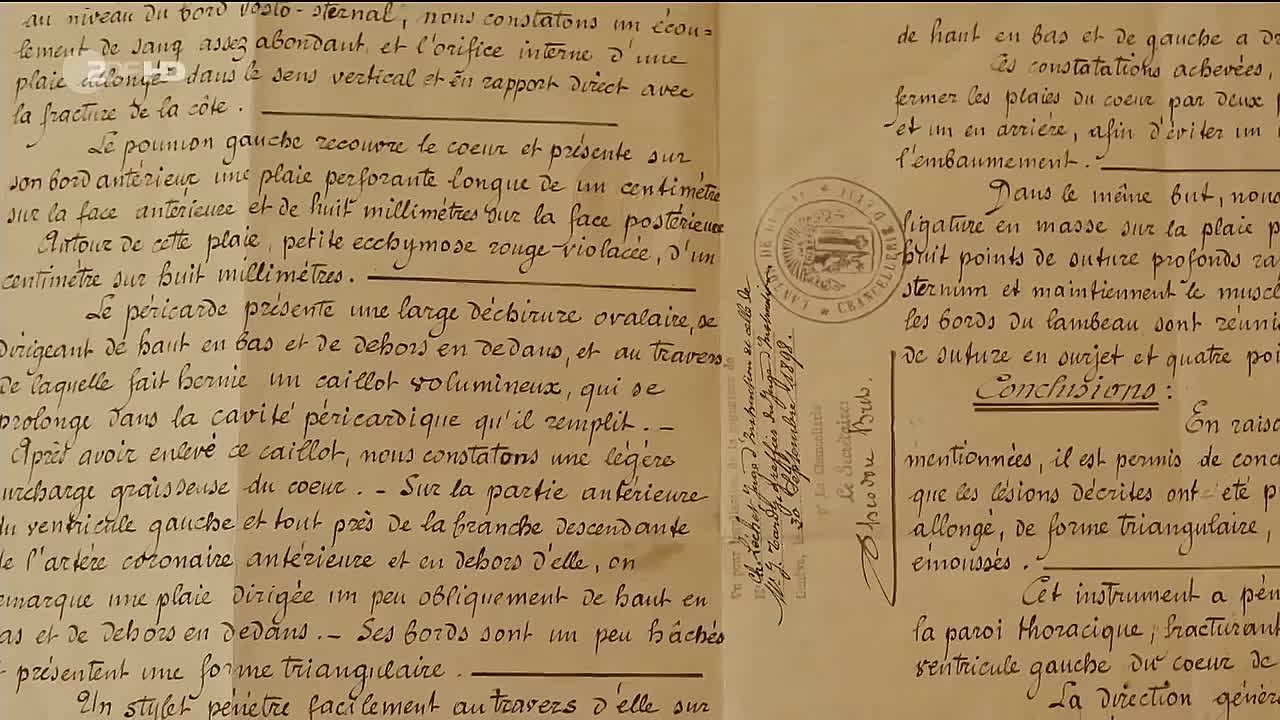 au niveau du bord posto-sternal, nous constatons un écou=
lement de sang assez abondant, et l'orifice interne d'une
plaie allongée dans le sens vertical et en rapport direct avec
la fracture de la côte.
Le poumon gauche recouvre le coeur et présente sur
son bord antérieur une plaie perforante longue de un centimètre
sur la face antérieure et de huit millimètres sur la face postérieure
Autour de cette plaie, petite ecchymose rouge-violacée, d'un
centimètre sur huit millimètres.
Le péricarde présente une large déchirure ovalaire, se
dirigeant de haut en bas et de dehors en dedans, et au travers
de laquelle fait hernie un caillot volumineux, qui se
prolonge dans la cavité péricardique qu'il remplit. _
Après avoir enlevé ce caillot, nous constatons une légère
urcharge graisseuse du coeur. _ Sur la partie antérieure
du ventricule gauche et tout près de la branche descendante
de l'artère coronaire antérieure et en dehors d'elle, on
emarque une plaie dirigée un peu obliquement de haut en
as et de dehors en dedans. _ Ses bords sont un peu hâchés
t présentent une forme triangulaire.
Un stylet pénètre facilement au travers d'elle sur
ZDF HD
CHANCELLERIE
juge d'instruction et celle de
greffier du juge d'instruction
30 Septembre 1898.
La Chancellerie
le Secrétaire
Théodore Bret.
de haut en bas et de gauche a
Ces constatations achevées,
fermer les plaies du coeur par deux
et un en arrière, afin d'éviter un
l'embaumement.
Dans le même but, nous
ligature en masse sur la plaie
huit points de suture profonds
sternum et maintiennent le muscl
les bords du lambeau sont réuni
de suture en surjet et quatre poi
Conclusions:
En raiso
mentionnées, il est permis de conc
que les lésions décrites ont été p
allongé, de forme triangulaire,
émoussés.
Cet instrument a pén
la paroi thoracique, fracturant
ventricule gauche du coeur de
La direction génér